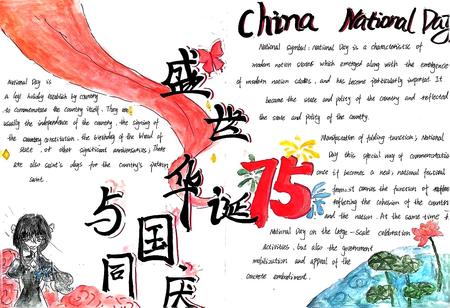 China National Day
National symbol: National Day is a characteristic of
modern nation states which emerged along with the emergence
of modern nation states, and has become particularly important. It
became the state and polity of the country and reflected
the state and polity of the country.
Manifestation of folding function; National
Day this special way of commemoration
once it becomes a new national festival
form.st carries the function of reflecting
reflecting the cohesion of the country
and the nation. At the same time
National Day on the large-scale celebration
activities, but also the government
mobilization and appeal of the
concrete embodiment.
National Day is
a legal holiday establish by country
to commemorate the country itself. They are
usually the independence of the country, the signing of
the country constitution, the birthday of the head of
state, or other significant anniversaries; There
are also saint's days for the country's patron
saint.
盛世华诞
75
与国同庆